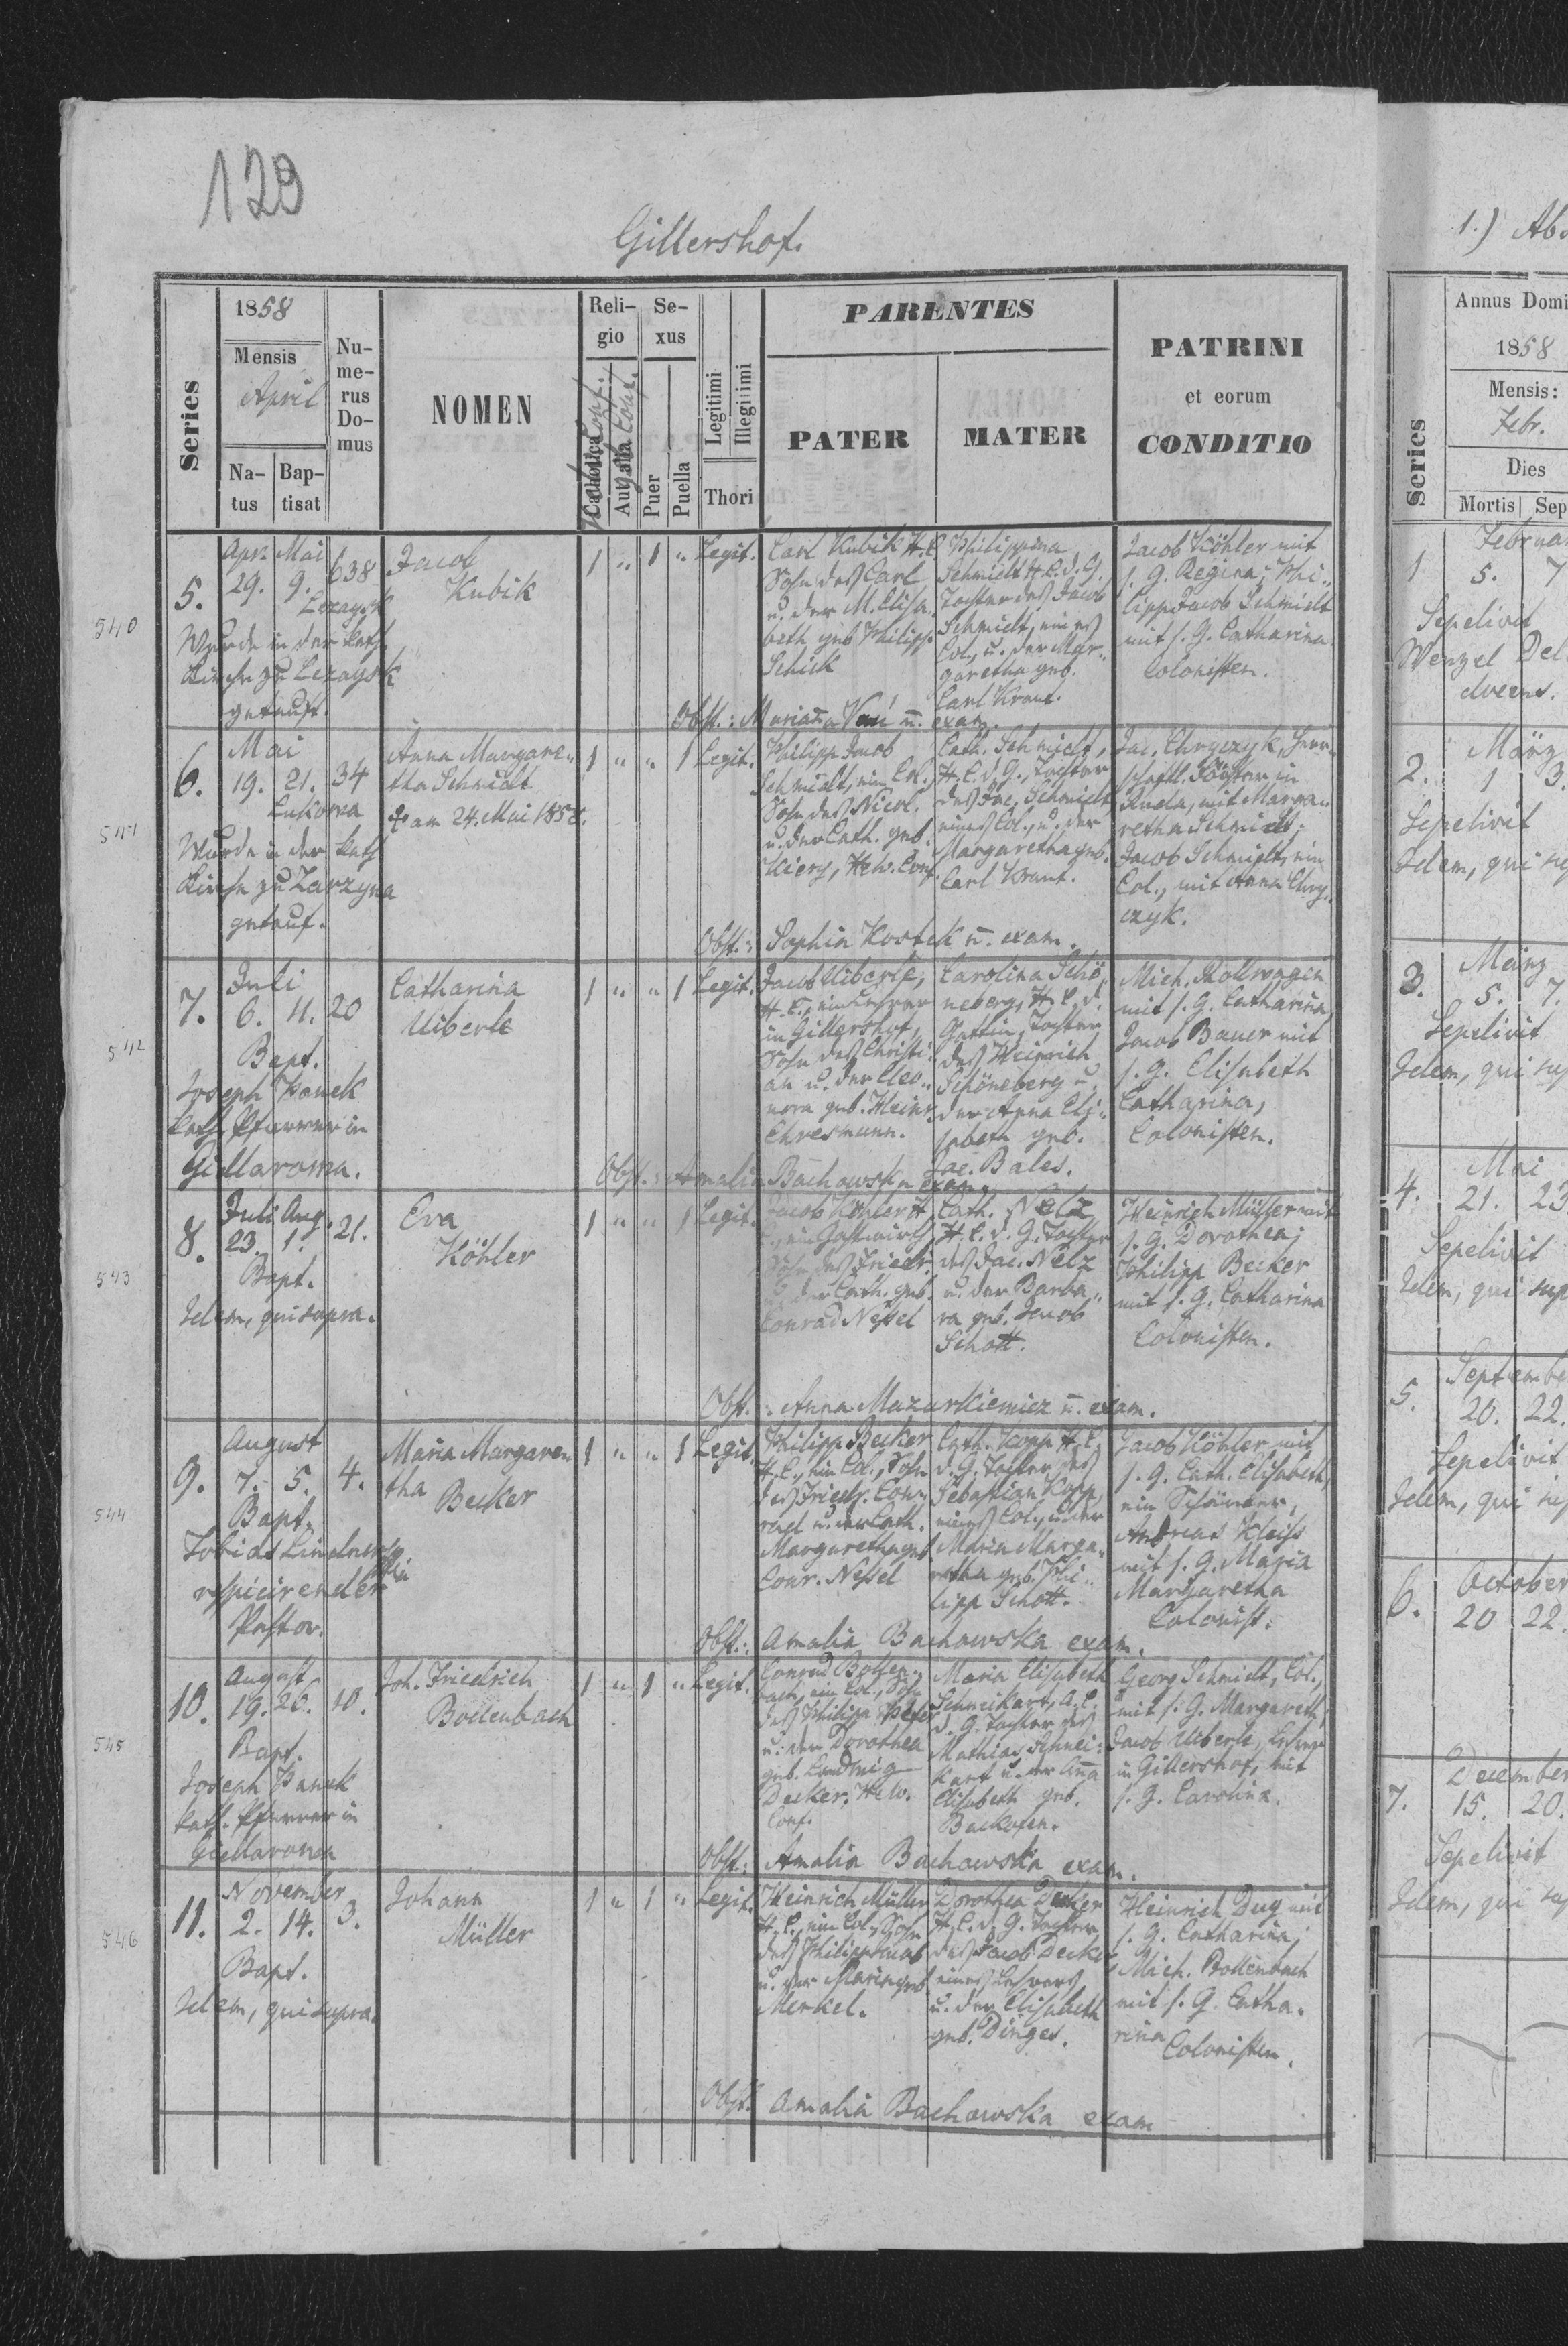 129
Gillershof.
Series
1858
Mensis
April
Na-
tus
Bap-
tisat
Nu-
me-
rus
Do-
mus
NOMEN
Reli-
gio
Catholica
Conf.
Aut alia
Conf.
Se-
xus
Puer
Puella
Legitimi
Illegitimi
Thori
PARENTES
PATER
MATER
PATRINI
et eorum
CONDITIO
540
5.
Apr. Mai
29. 9. 638
Lezaysk
Wurde in der kath.
Kirche zu Lezaysk
getauft.
Jacob
Kubik
1 " 1 " Legit.
Carl Kubik H. C.
Sohn des Carl
u. der M. Elisa-
beth geb. Philipp
Schick
Philippina
Schmidt H. C. d. G.
Tochter des Jacob
Schmidt, eines
Col., u. der Mar-
garetha geb.
Carl Kraut.
Jacob Köhler mit
s. G. Regina; Phi-
lipp Jacob Schmidt
mit s. G. Catharina
Colonisten.
Obst.: Marianna u. exam.
541
6.
Mai
19. 21. 34
Lukowa
Wurde in der kath.
Kirche zu Tarzyna
getauf.
Anna Margare-
tha Schmidt
am 24. Mai 1858.
1 " " 1 Legit.
Philipp Jacob
Schmidt, ein Col.
Sohn des Nicol.
u. der Cath. geb.
Helv. Conf.
Cath. Schmidt,
H. C. d. G., Tochter
des Jac. Schmidt,
eines Col., u. der
Margaretha geb.
Carl Kraut.
Jac. Chryczyk, herr-
schaftl. Förster in
Ruda, mit Marga-
retha Schmidt;
Jacob Schmidt, ein
Col., mit Anna Chry-
czyk.
Obst.: Sophia Kostek u. exam.
542
7.
Juli
6. 11. 20
Bapt.
Joseph Panek
kath. Pfarrer in
Giellarowa.
Catharina
Uiberle
1 " " 1 Legit.
Jacob Uiberle,
H. C., ein Lehrer
in Gillershof,
Sohn des Christi-
an u. der Eleo-
nora geb. Heinr.
Ehresmann.
Carolina Schö-
neberg, H. C. d.
Gattin, Tochter
des Heinrich
Schöneberg u.
der Anna Eli-
sabeth geb.
Jac. Bales.
Mich. Kollwagen
mit s. G. Catharina,
Jacob Bauer mit
s. G. Elisabeth
Catharina,
Colonisten.
Obst.: Amalia Bachowska exam.
543
8.
Juli Aug.
23. 1. 21.
Bapt.
Idem, qui supra.
Eva
Köhler
1 " " 1 Legit.
Jacob Köhler H.
C., ein Gastwirth,
Sohn des Friedr.
u. der Cath. geb.
Conrad Nessel
Cath. Nelz
H. C. d. G. Tochter
des Jac. Nelz
u. der Barba-
ra geb. Jacob
Schott.
Heinrich Müller mit
s. G. Dorothea;
Philipp Becker
mit s. G. Catharina
Colonisten.
Obst.: Anna Mazurkiewicz u. exam.
544
9.
August
7. 5. 4.
Bapt.
Tobias Lindner,
respicirender
Pastor.
Maria Margare-
tha
Becker
1 " " 1 Legit.
Philipp Becker
H. C., ein Col., Sohn
des Friedr. Con-
rad u. der Cath.
Margaretha geb.
Conr. Nessel
Cath. Kopp H. C.
d. G. Tochter des
Sebastian Kopp,
eines Col., u. der
Maria Marga-
retha geb. Phi-
lipp Schott.
Jacob Köhler mit
s. G. Cath. Elisabeth,
ein Schänker,
Andreas Kleiss
mit s. G. Maria
Margaretha
Colonist.
Obst.: Amalia Bachowska exam.
545
10.
August
19. 26. 10.
Bapt.
Joseph Panek
kath. Pfarrer in
Giellarowa
Joh. Friedrich
Bollenbach
1 " 1 " Legit.
Conrad Bollen-
bach, ein Col., Sohn
des Philipp Peter
u. der Dorothea
geb. Ludwig
Decker. Helv.
Conf.
Maria Elisabeth
Schneikart, A. C.
d. G. Tochter des
Mathias Schnei-
kart u. der Anna
Elisabeth geb.
Backofen.
Georg Schmidt, Col.,
mit s. G. Margareth;
Jacob Uiberle, Lehrer
in Gillershof, mit
s. G. Carolina.
Obst.: Amalia Bachowska exam.
546
11.
November
2. 14. 3.
Bapt.
Idem, qui supra.
Johann
Müller
1 " 1 " Legit.
Heinrich Müller
H. C., ein Col., Sohn
des Philipp Jacob
u. der Maria geb.
Merkel.
Dorothea Decker
H. C. d. G. Tochter
des Jacob Decker
eines Lehrers
u. der Elisabeth
geb. Dinges.
Heinrich Dug mit
s. G. Catharina;
Mich. Bollenbach
mit s. G. Catha-
rina
Colonisten.
Obst. Amalia Bachowska exam
1.)
Series
Annus Domi
1858
Mensis:
Febr.
Dies
Mortis Sep
1
Februar
5. 7
Sepelivit
Wenzel
2.
März
1 3.
Sepelivit
Idem, qui
3.
März
5. 7.
Sepelivit
Idem, qui sup
4.
Mai
21. 23
Sepelivit
Idem, qui sup
5.
Septembe
20. 22.
Sepelivit
Idem, qui
6.
October
20 22.
7.
December
15. 20.
Sepelivit
Idem, qui